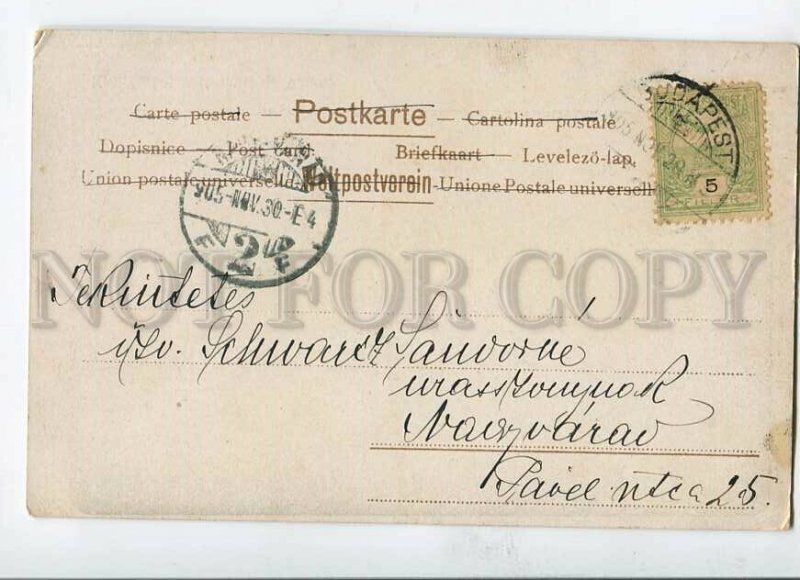 Carte postale — Postkarte — Cartolina postale
Dopisnice — Post card Briefkaart — Levelező-lap
Union postale universelle Weltpostverein Unione Postale universelle
BUDAPEST
5
905-NOV.30-E4
2
NOT FOR COPY
Tekintetes
özv. Schwarcz Sándorné
urasszonynak
Nagyvárad
Pavel utca 25.